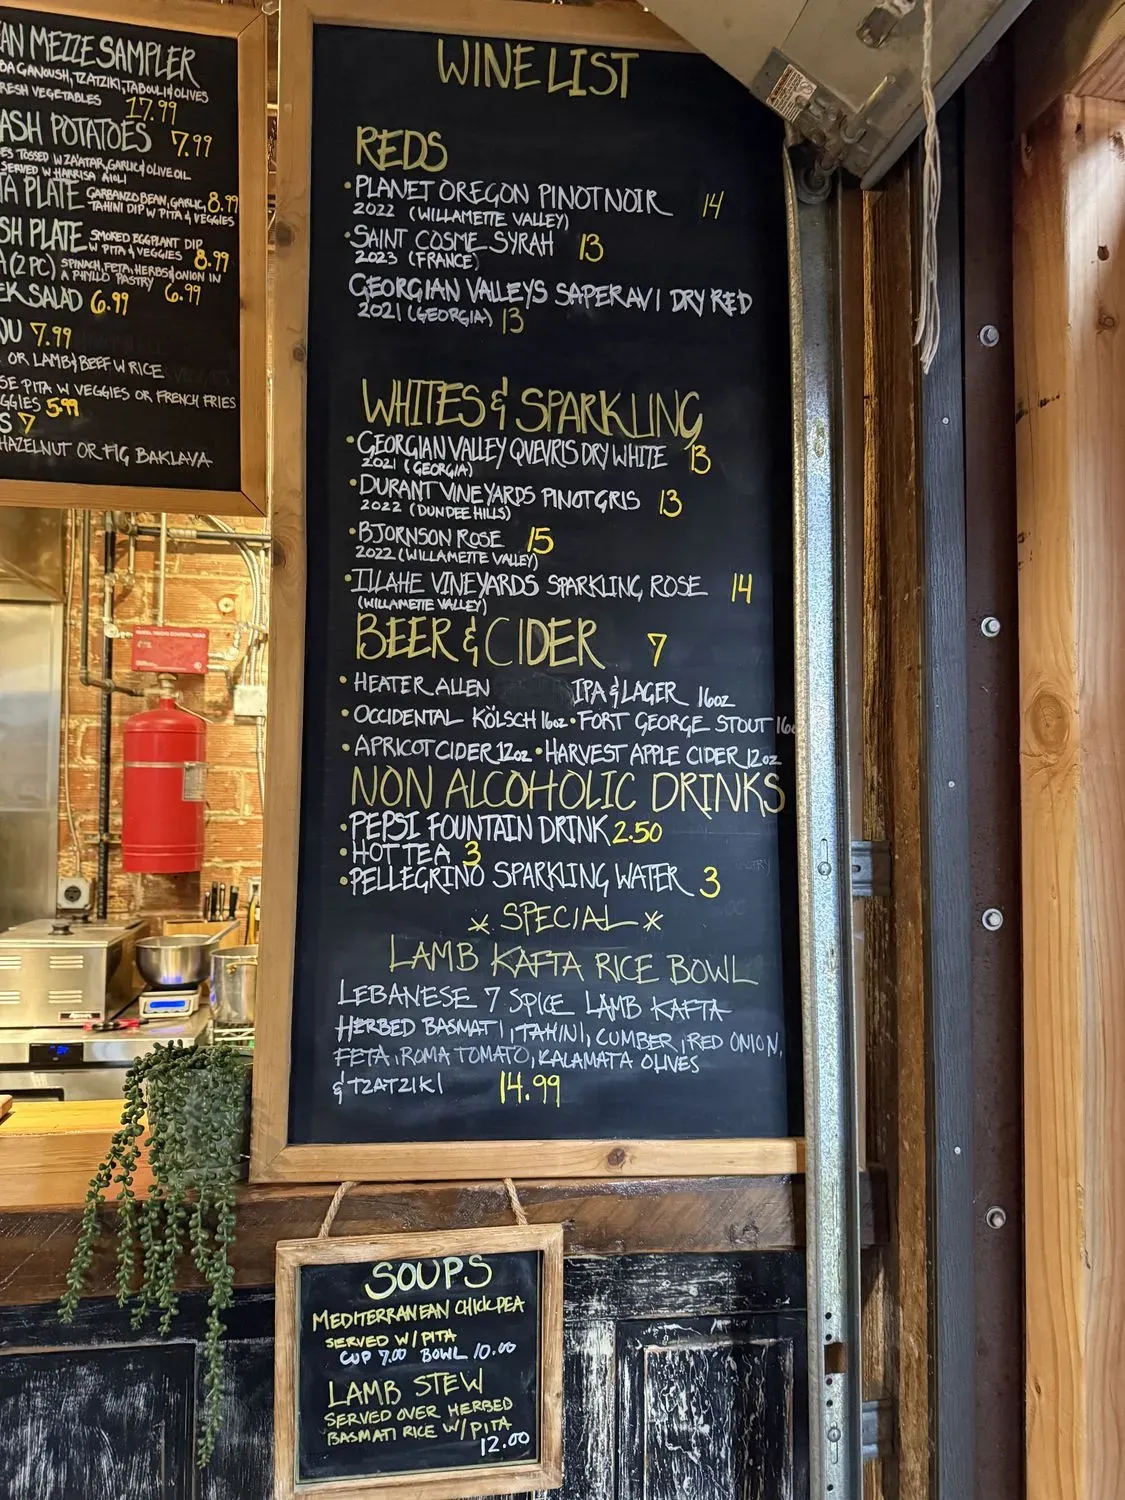 AN MEZZE SAMPLER
BA GANOUSH, TZATZIKI, TABOULI & OLIVES
RESH VEGETABLES 17.99
ASH POTATOES 7.99
ES TOSSED W ZA'ATAR, GARLIC & OLIVE OIL
SERVED W HARRISA AIOLI
TA PLATE GARBANZO BEAN, GARLIC, 8.99
TAHINI DIP W PITA & VEGGIES
SH PLATE SMOKED EGGPLANT DIP
W PITA & VEGGIES 8.99
A (2 PC) SPINACH, FETA, HERBS & ONION IN
A PHYLLO PASTRY 6.99
EK SALAD 6.99
OU 7.99
OR LAMB & BEEF W RICE
SE PITA W VEGGIES OR FRENCH FRIES
GGIES 5.99
S 7
HAZELNUT OR FIG BAKLAVA
WINE LIST
REDS
• PLANET OREGON PINOT NOIR 14
2022 (WILLAMETTE VALLEY)
• SAINT COSME SYRAH 13
2023 (FRANCE)
GEORGIAN VALLEYS SAPERAVI DRY RED
2021 (GEORGIA) 13
WHITES & SPARKLING
• GEORGIAN VALLEY QVEVRIS DRY WHITE 13
2021 (GEORGIA)
• DURANT VINEYARDS PINOT GRIS 13
2022 (DUNDEE HILLS)
• BJORNSON ROSE 15
2022 (WILLAMETTE VALLEY)
• ILLAHE VINEYARDS SPARKLING ROSE 14
(WILLAMETTE VALLEY)
BEER & CIDER 7
• HEATER ALLEN IPA & LAGER 16oz
• OCCIDENTAL KÖLSCH 16oz • FORT GEORGE STOUT 16o
• APRICOT CIDER 12oz • HARVEST APPLE CIDER 12oz
NON ALCOHOLIC DRINKS
• PEPSI FOUNTAIN DRINK 2.50
• HOT TEA 3
• PELLEGRINO SPARKLING WATER 3
* SPECIAL *
LAMB KAFTA RICE BOWL
LEBANESE 7 SPICE LAMB KAFTA
HERBED BASMATI, TAHINI, CUMBER, RED ONION,
FETA, ROMA TOMATO, KALAMATA OLIVES
& TZATZIKI 14.99
SOUPS
MEDITERRANEAN CHICKPEA
SERVED W/ PITA
CUP 7.00 BOWL 10.00
LAMB STEW
SERVED OVER HERBED
BASMATI RICE W/ PITA
12.00